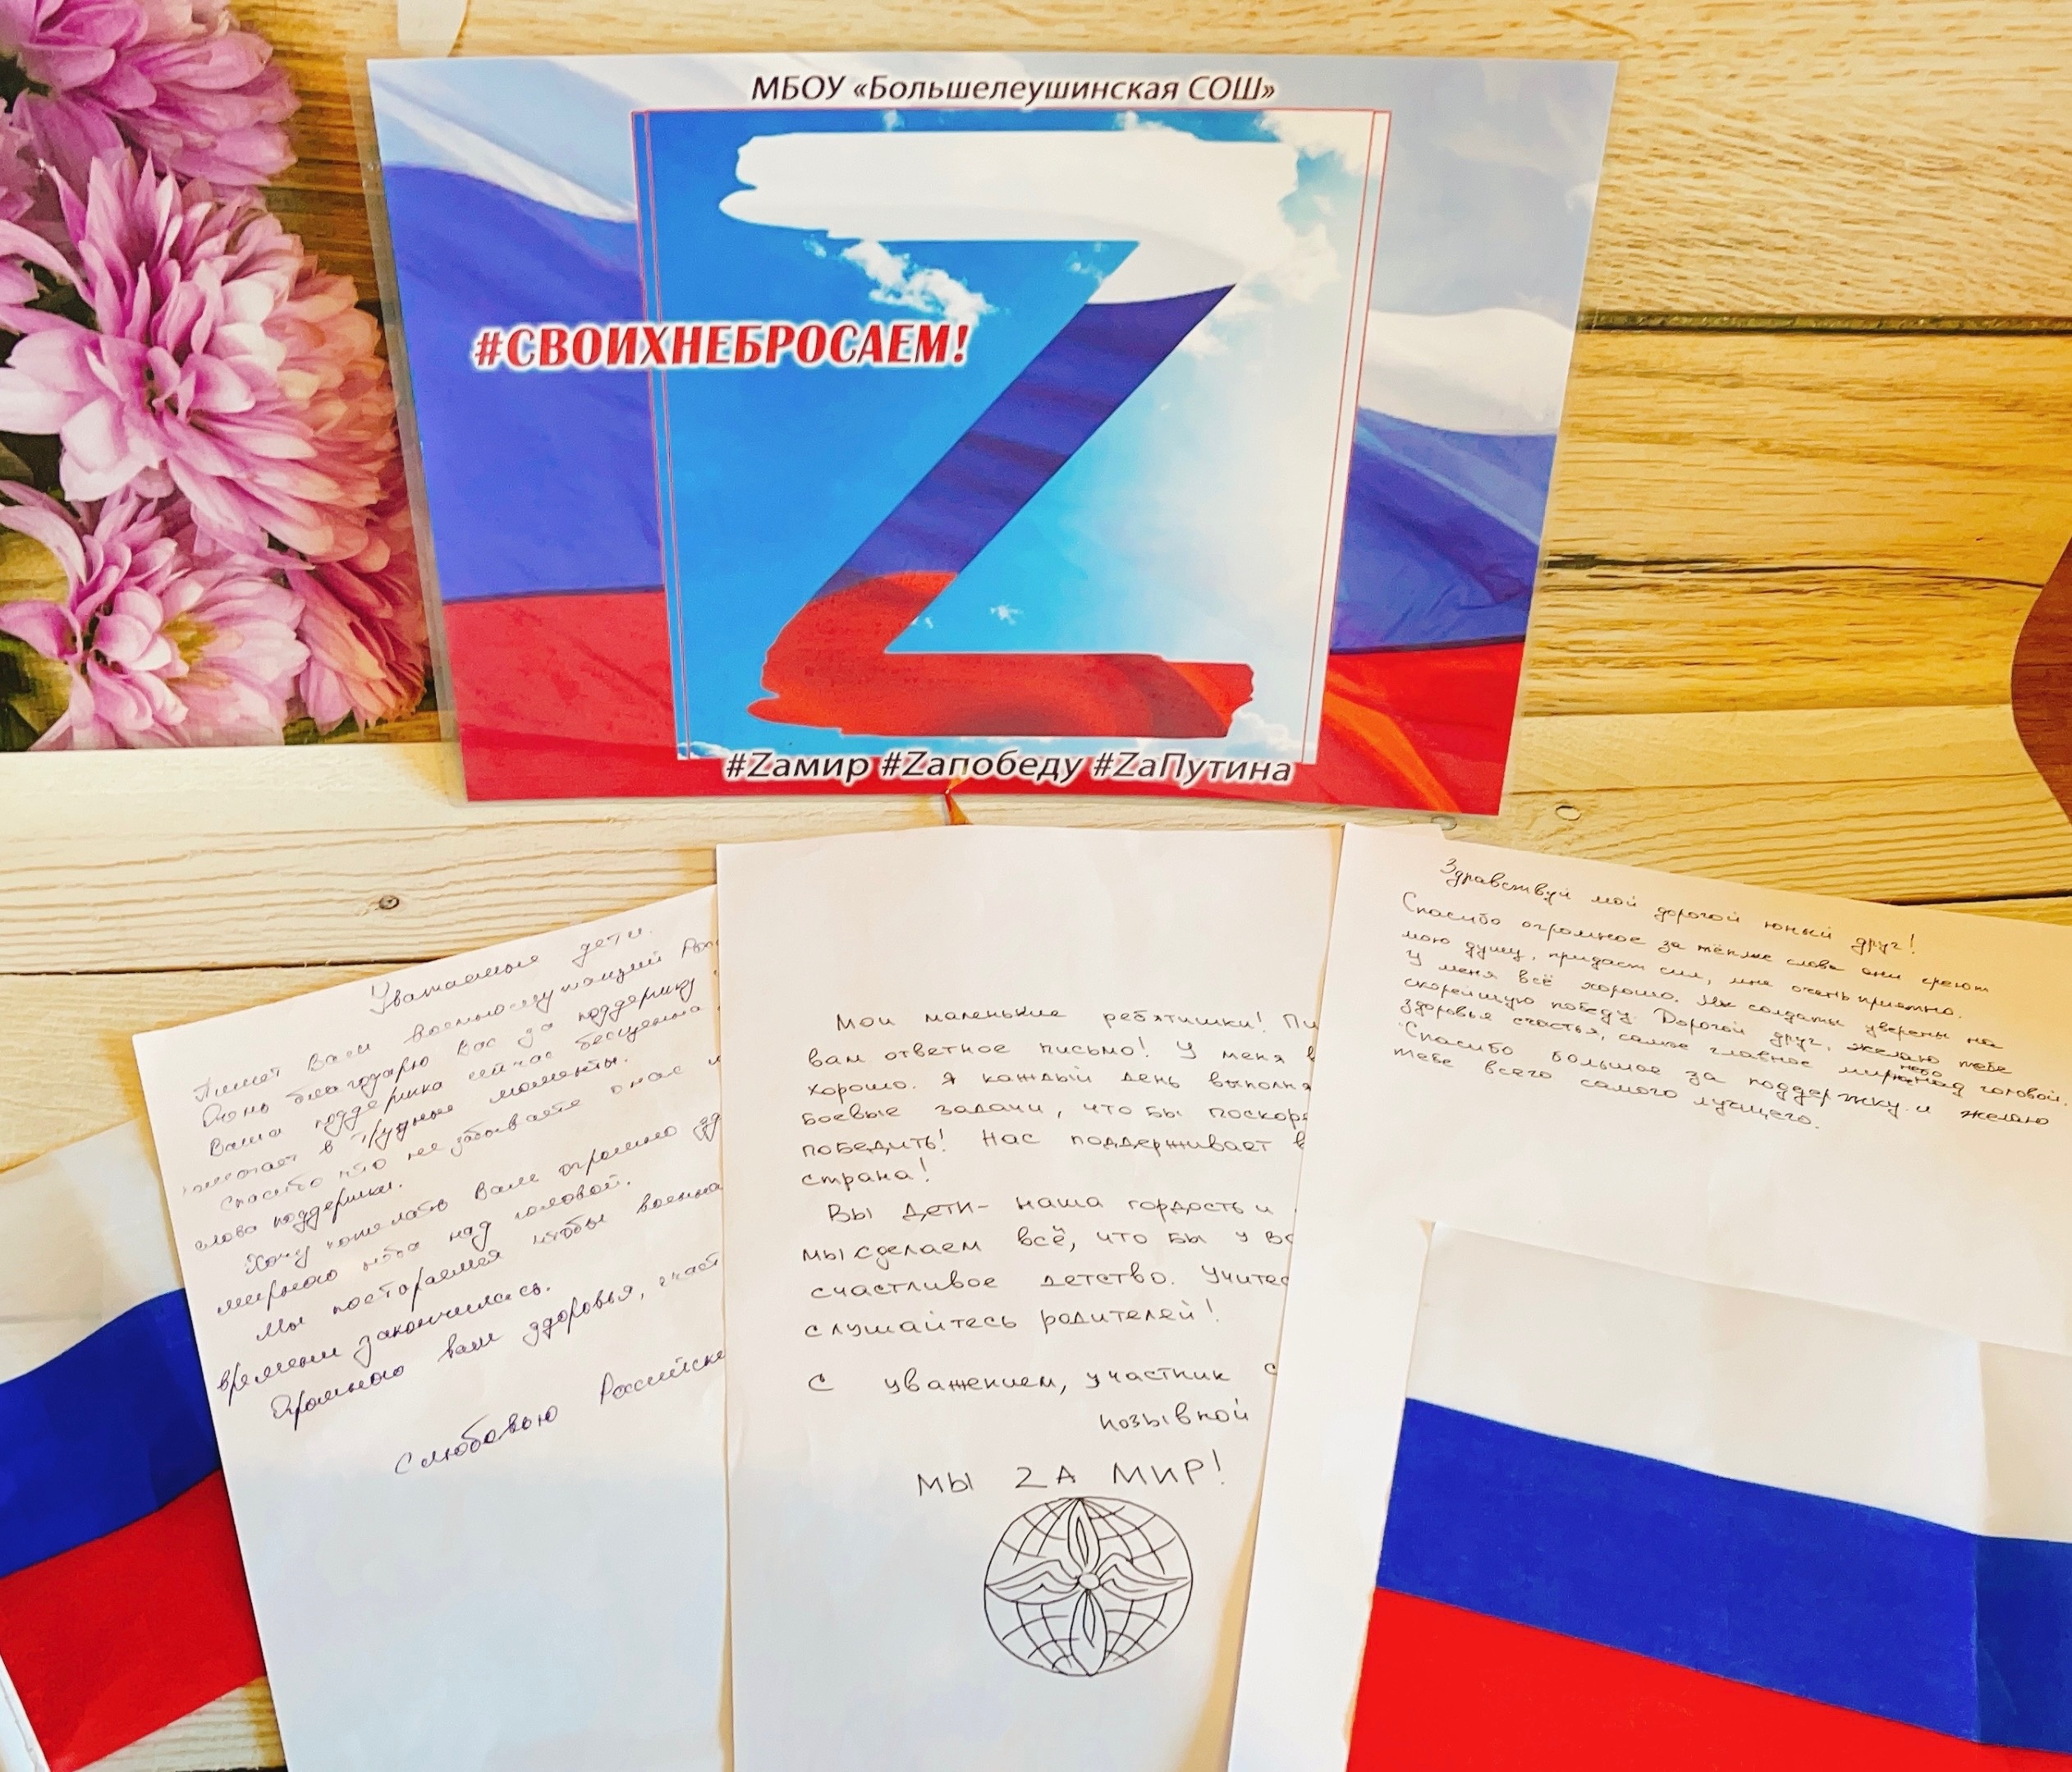 МБОУ «Большелеушинская СОШ»
#СВОИХНЕБРОСАЕМ!
#Zамир #Zапобеду #ZaПутина
Уважаемые дети.
Пишет Вам военнослужащий
Очень благодарю Вас за поддержку
Ваша поддержка сейчас бесценна
помогает в трудные моменты.
Спасибо что не забываете о нас и
слова поддержки.
Хочу пожелать Вам огромно
мирного неба над головой.
Мы постараемся чтобы
времени закончилась.
Огромного вам здоровья,
С любовью
Мои маленькие ребятишки!
вам ответное письмо! У меня
хорошо. Я каждый день
боевые задачи, что бы
победить! Нас поддерживает
страна!
Вы дети- наша гордость и
мы сделаем всё, что бы у
счастливое детство.
слушайтесь родителей!
С уважением, участник
позывной
МЫ ZА МИР!
Здравствуй мой дорогой юный друг!
Спасибо огромное за тёплые слова они греют
мою душу, придаст сил, мне очень приятно.
У меня всё хорошо. Мы солдаты уверены на
скорейшую победу. Дорогой друг, желаю тебе
здоровья счастья, самое главное небо над головой.
Спасибо большое за поддержку и желаю
тебе всего самого лучшего.